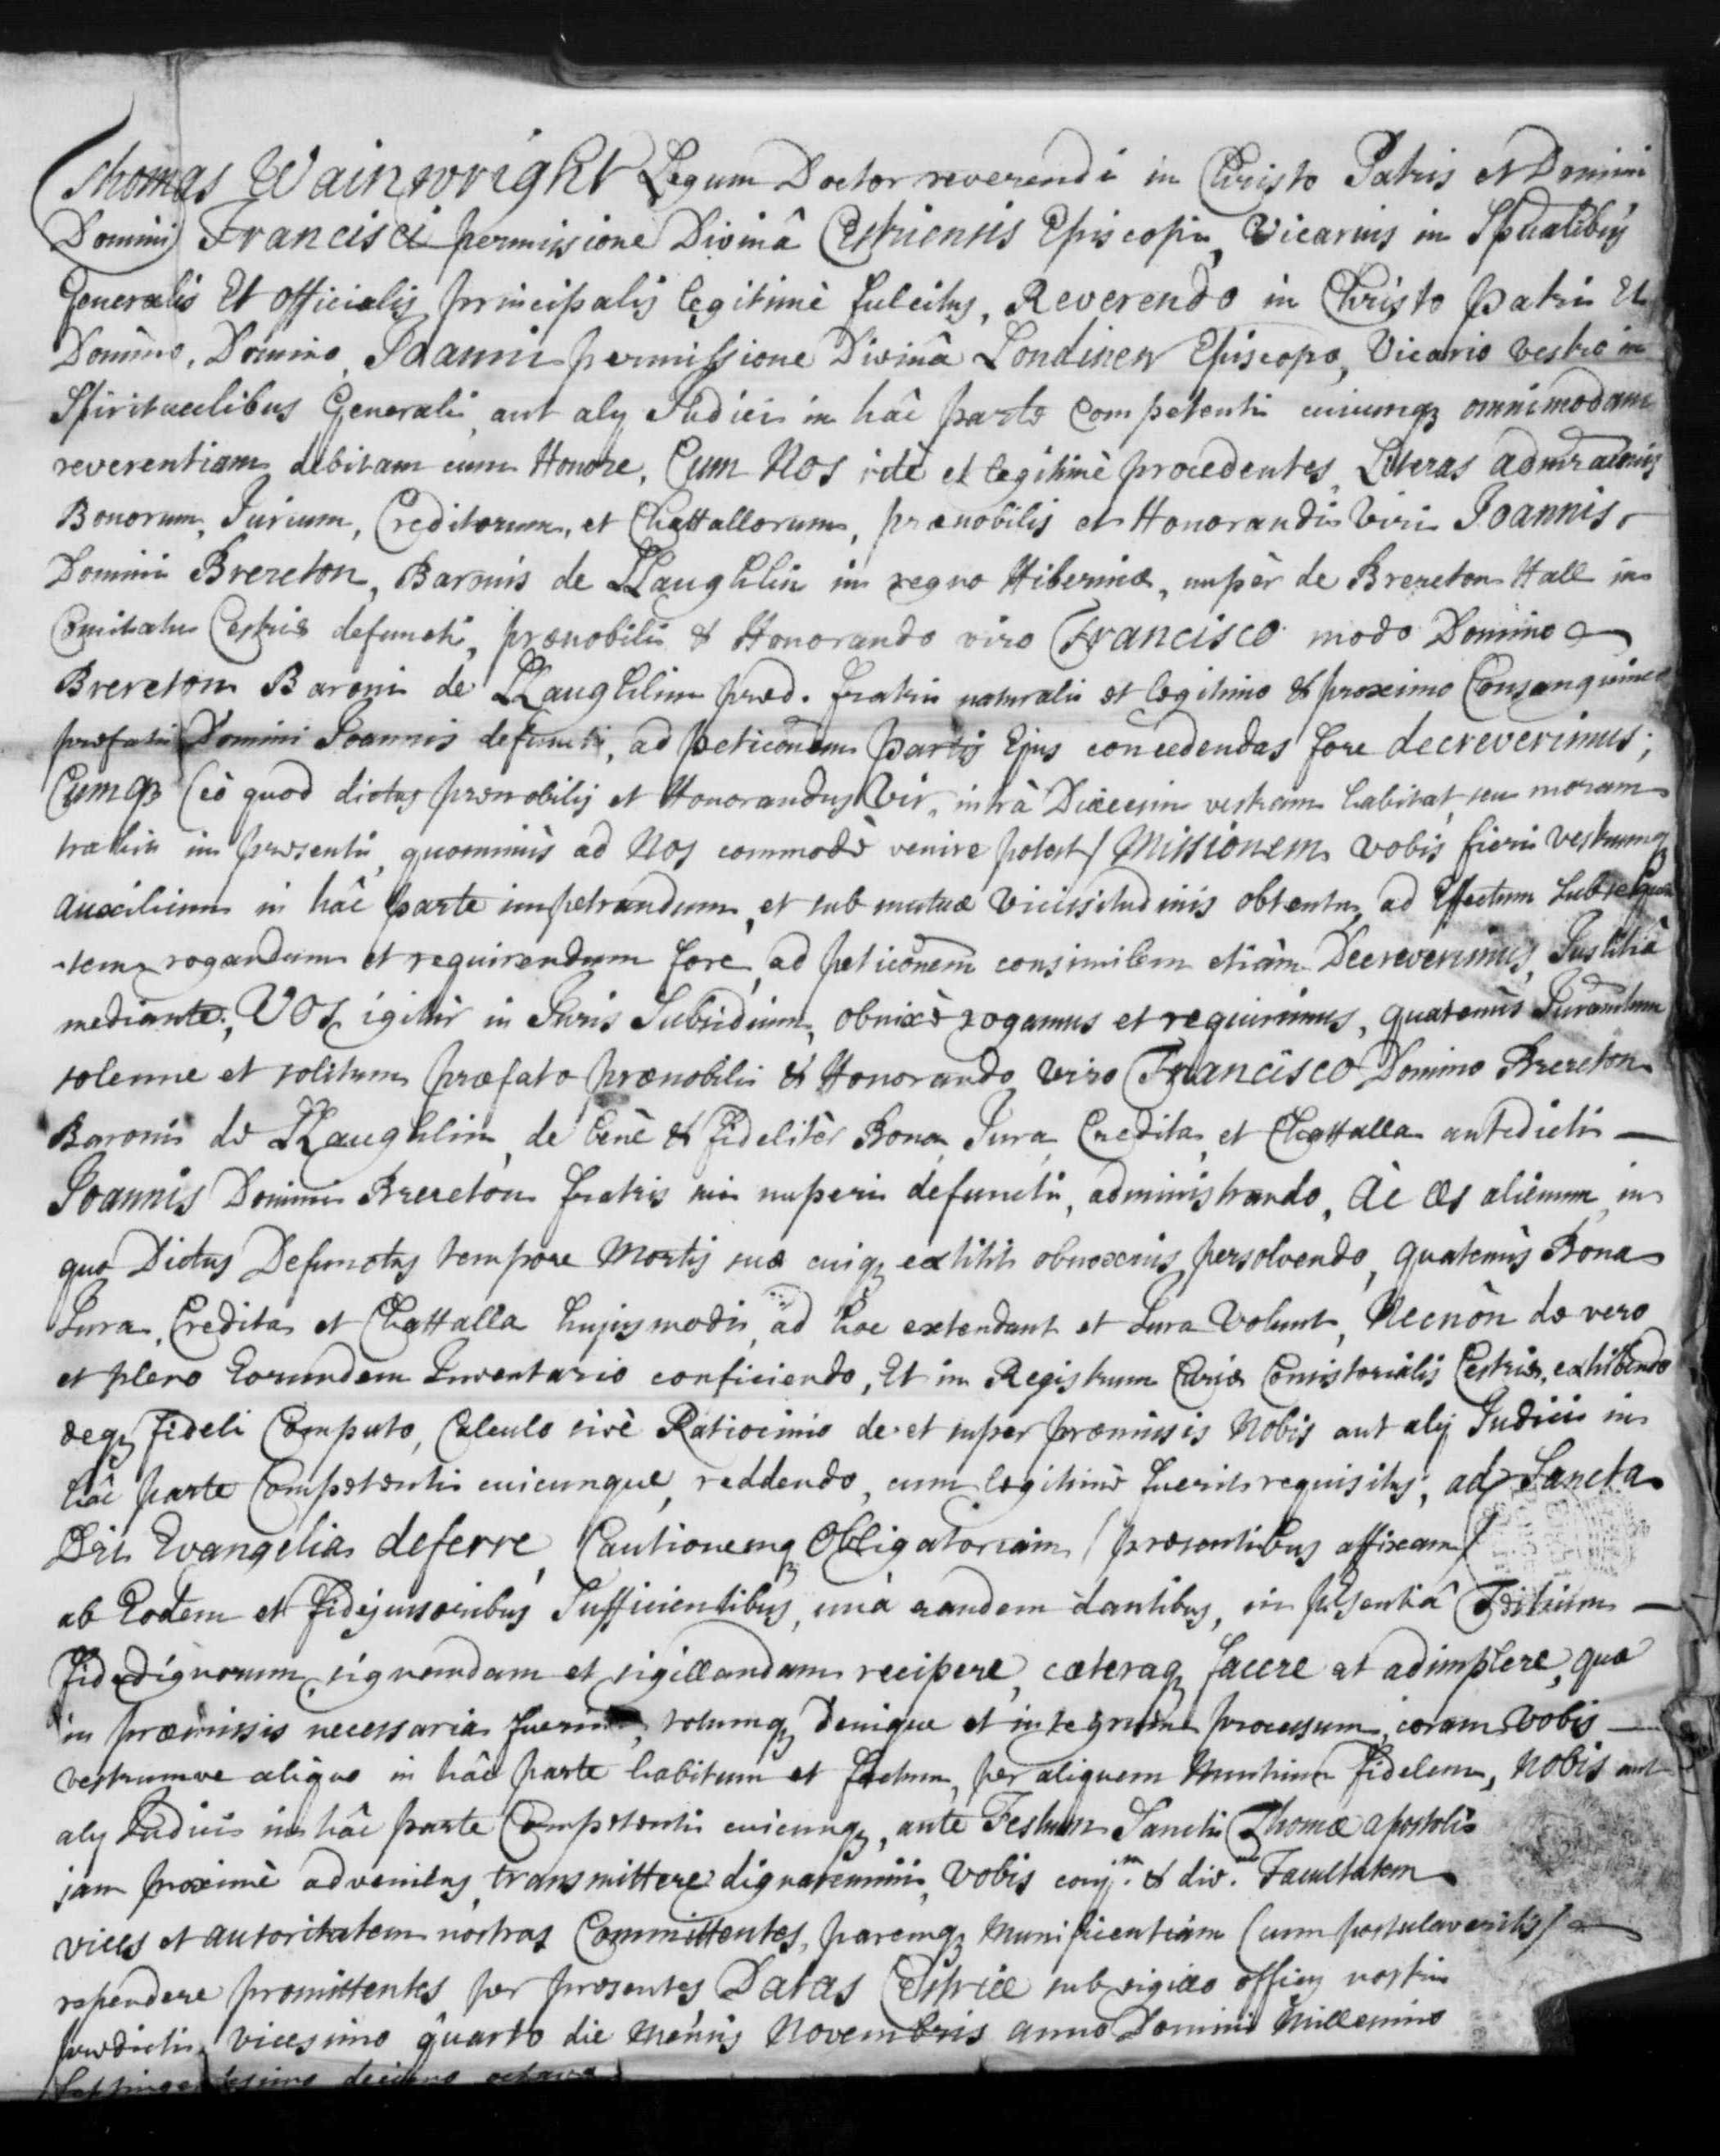 Thomas Wainwright Legum Doctor reverendi in Christo Patris et Domini
Domini Francisci permissione Divinâ Cestriensis Episcopi, Vicarius in Sp̄ualibus
Generalis Et Officialis principalis legitimè fulcitus, Reverendo in Christo patri Et
Domino, Domino Joanni permissione Divinâ Londinen Episcopo, Vicario vestro in
Spiritualibus Generali, aut alij Judici in hâc parte Competenti cuicunqꝫ omnimodam
reverentiam debitam cum Honore, Cum Nos ritè et legitimè procedentes, Literas adm̄rac̄onis
Bonorum, Jurium, Creditorum, et Chattallorum, prænobilis et Honorandi Viri Joannis
Domini Brereton, Baronis de LLaughlin in regno Hiberniæ, nupèr de Brereton Hall in
Comitatu Cestriæ defuncti, prænobili & Honorando viro Francisco modo Domino
Brereton Baroni de LLaughlin præd. fratri naturali et legitimo & proximo Consanguineo
præfati Domini Joannis defuncti, ad petic̄onem partis Ejus concedendas fore decreverimus;
Cumqꝫ (eò quod dictus prænobilis et Honorandus Vir, intrà Diœcesin vestram habitat, seu moram
trahit in præsenti, quominùs ad Nos commodè venire potest) Missionem vobis fieri vestrumqꝫ
auxilium in hâc parte impetrandum, et sub mutuæ vicissitudinis obtentu, ad Effectum subsequen
-tem rogandum et requirendum fore, ad petic̄onem consimilem etiàm Decreverimus, Justitiâ
mediante; Vos igitùr in Juris Subsidium, obnixè rogamus et requirimus, quatenùs Juramentum
solenne et solitum præfato prænobili & Honorando viro Francisco Domino Brereton
Baroni de LLaughlin, de benè & fidelitèr Bona, Jura, Credita, et Chattalla antedicti —
Joannis Domini Brereton fratris sui nuperi defuncti, administrando, Ac æs alienum, in
quo Dictus Defunctus tempore Mortis suæ cuiqꝫ extitit obnoxius, persolvendo, quatenùs Bona
Jura, Credita et Chattalla hujusmodi, ad hoc extendant et Jura Volunt, Necnòn de vero
et pleno Eorundem Inventario conficiendo, Et in Registrum Curiæ Consistorialis Cestriæ, exhibendo
deqꝫ fideli Computo, Calculo sivè Ratiocinio de et super præmissis Nobis aut alij Judici in
hâc parte Competenti cuicunque, reddendo, cum legitimè fuerit requisitus, ad Sancta
Dei Evangelia deferre, Cautionemqꝫ Obligatoriam (præsentibus affixam)
ab Eodem et fidejussoribus Sufficientibus, unà eandem dantibus, in p̄sentiâ Testium —
fidedignorum, signandam et sigillandam recipere, cæteraqꝫ facere et adimplere, quæ
in præmissis necessaria fuerint, totumqꝫ Denique et integrum processum, coram Vobis —
vestrumve aliquo in hâc parte habitum et factum, per aliquem Nuntium fidelem, Nobis aut
alij Judici in hâc parte Competenti cuicunqꝫ, ante Festum Sancti Thomæ apostoli
jam proximè adveniens, transmittere dignaremini, Vobis conj.m & div.m Facultatem
vices et autoritatem nostras Committentes, paremqꝫ Munificentiam (cum postulaveritis)
rependere promittentes, per præsentes, Datas Cestriæ sub sigillo officij nostri
prædicti, vicesimo quarto die Mensis Novembris anno Domini Millesimo
Septingentesimo decimo octavo